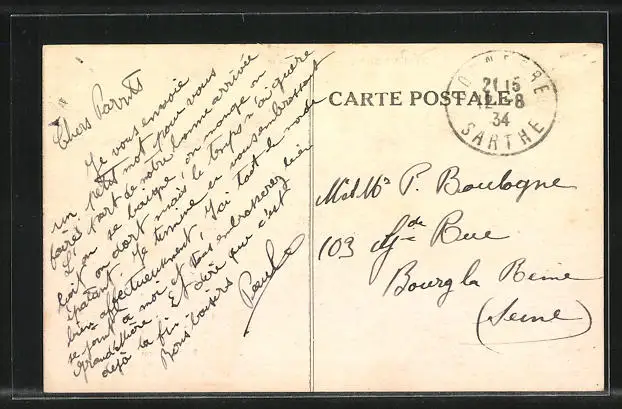 Chers Parents
Je vous envoie
un petit mot pour vous
faire part de notre bonne arrivée
L'on se baigne, on mange on
boit on dort mais le temps n'ai guère
épatant. Je termine en vous embrassant
bien affectueusement, Ici tout le monde
se joint à moi et vous embrasserez bien
Grand'Mère. Et dire que c'est
déjà la fin.
Bons baisers
Paul
CARTE POSTALE
21 15
12-8
34
SARTHE
P. Boulogne
103 Gde Rue
Bourg la Reine
(Seine)